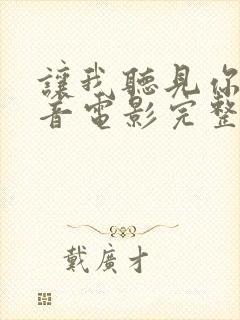 讓我聽見你
音電影完整
戴廣才